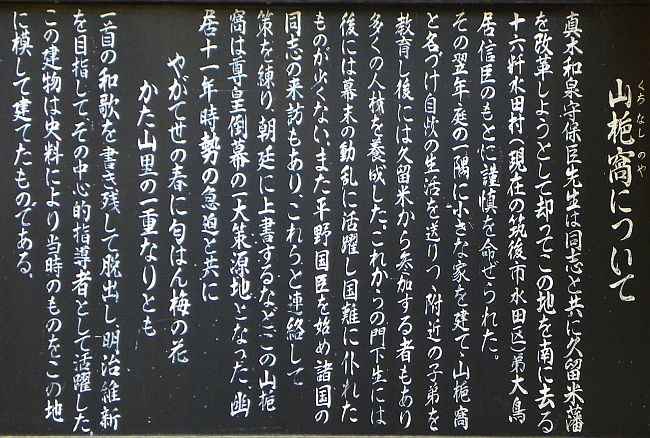 山梔窩について
くちなしのや
真木和泉守保臣先生は同志と共に久留米藩
を改革しようとして却ってこの地を南に去る
十六粁水田村(現在の筑後市水田区)弟大鳥
居信臣のもとに謹慎を命ぜられた。
その翌年庭の一隅に小さな家を建て山梔窩
と名づけ自炊の生活を送りつゝ附近の子弟を
教育し後には久留米から参加する者もあり
多くの人材を養成した、これからの門下生には
後には幕末の動乱に活躍し国難に仆れた
ものが少くない、また平野国臣を始め諸国の
同志の来訪もあり、これらと連絡して
策を練り朝廷に上書するなどこの山梔
窩は尊皇倒幕の一大策源地となった、幽
居十一年時勢の急迫と共に
やがて世の春に匂はん梅の花
かた山里の一重なりとも
一首の和歌を書き残して脱出し、明治維新
を目指して、その中心的指導者として活躍した。
この建物は史料により当時のものをこの地
に模して建てたものである。